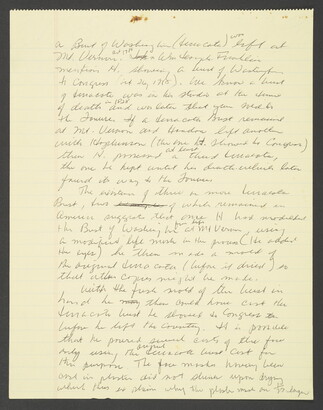 a Bust of Washington (terra cota) was left at
Mt. Vernon. at 1st Wm Temple Franklin
mentions H. showing a bust of Washington
to Congress. We know a bust
of terra cota was in his studio at the time
of death in 1828 and was later that year sold to
the Louvre. If a terra cota Bust remained
at Mt. Vernon and Houdon left another
with Hopkinson (the one H. showed to Congress)
then H. possessed at least a third terra cota,
the one he kept until his death which later
found its way to the Louvre.
The existence of three or more terra cota
Busts, two of which remained in
America suggests that once H had modeled
the Bust of Washington at Mt Vernon, using
a modified life mask in the process (he added
the eyes) he then made a mold of
the original terra cota (before it dried) so
that other copies might be made.
With the first mold of the bust in
hand he then could have cast the
terra cota bust he showed to Congress
before he left the country. It is possible
that he poured several casts of the face
only using the original terra cota bust cast for
this purpose. The face masks having been
cast in plaster did not shrink upon drying
which this is